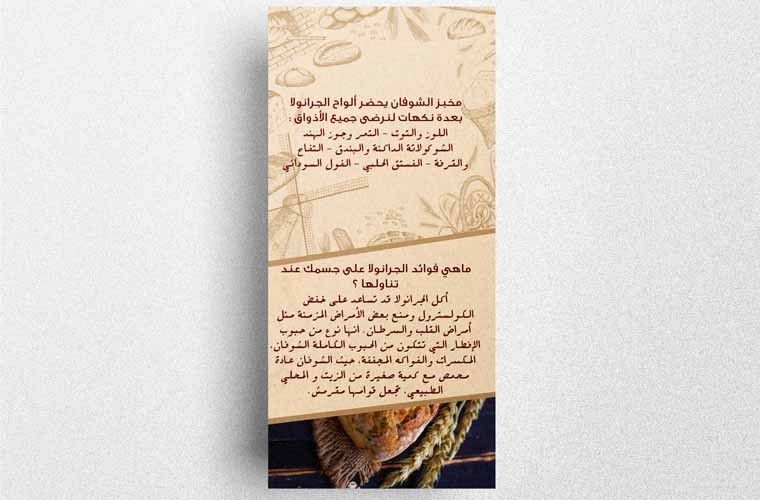 مخبز الشوفان يحضر ألواح الجرانولا
بعدة نكهات لنرضي جميع الأذواق :
اللوز والتوت - التمر وجوز الهند
الشوكولاتة الداكنة والبندق - التفاح
والقرفة - الفستق الحلبي - الفول السوداني
ماهي فوائد الجرانولا على جسمك عند
تناولها ؟
أكل الجرانولا قد تساعد على خفض
الكولسترول ومنع بعض الأمراض المزمنة مثل
أمراض القلب والسرطان. انها نوع من حبوب
الإفطار التي تتكون من الحبوب الكاملة الشوفان.
المكسرات والفواكه المجففة. حيث الشوفان عادة
محمص مع كمية صغيرة من الزيت و المحلي
الطبيعي. تجعل قوامها مقرمش.